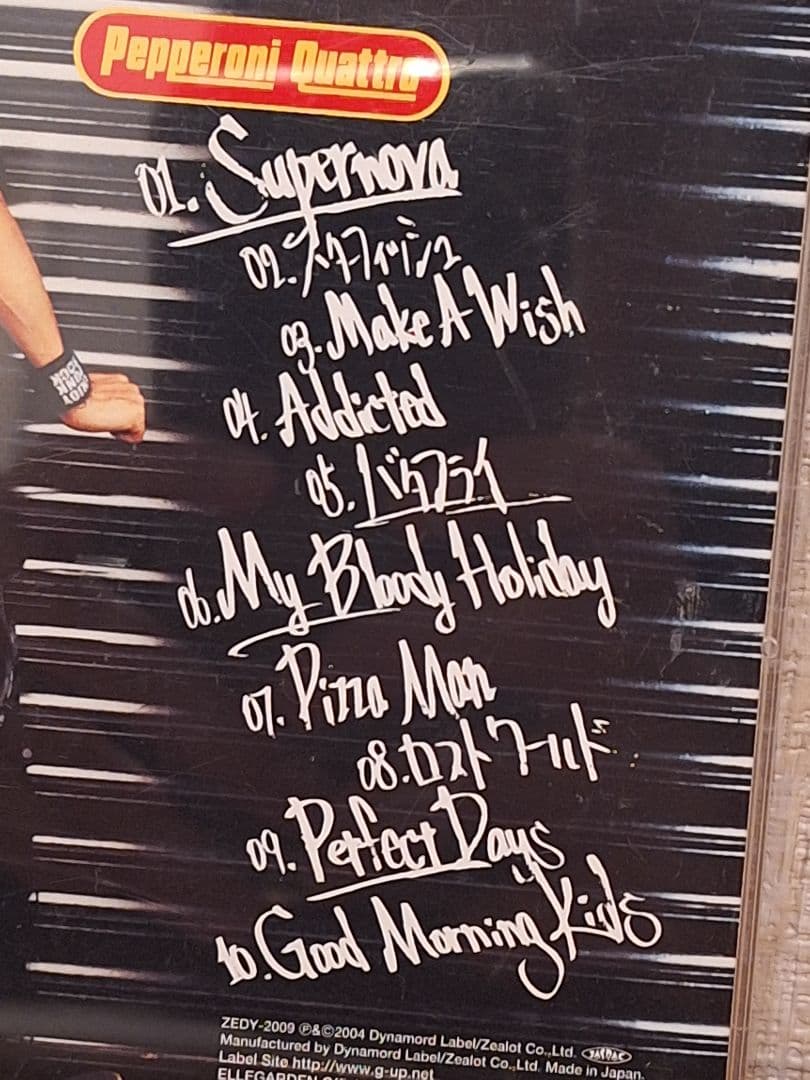 Pepperoni Quattro
01. Supernova
02. スターフィッシュ
03. Make A Wish
04. Addicted
05. バタフライ
06. My Bloody Holiday
07. Pizza Man
08. ロストワールド
09. Perfect Days
10. Good Morning Kids
ZEDY-2009 Ⓟ&©2004 Dynamord Label/Zealot Co.,Ltd. JASRAC
Manufactured by Dynamord Label/Zealot Co.,Ltd. Made in Japan.
Label Site http://www.g-up.net
ELLEGARDEN